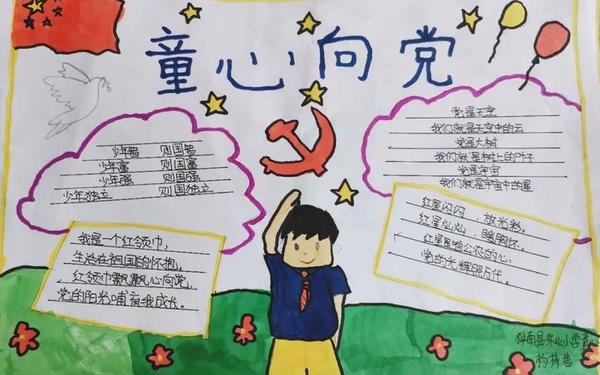 童心向党
少年智 则国智
少年富 则国富
少年强 则国强
少年独立 则国独立
党是天空
我们就是天空中的云
党是大树
我们就是树上的叶子
党是宇宙
我们就是宇宙中的星
我是一个红领巾,
生活在祖国的怀抱,
红领巾飘飘心向党,
党的阳光哺育我成长。
红星闪闪,放光彩,
红星灿灿,暖胸怀,
红星是咱公农的心,
党的光辉照万代。